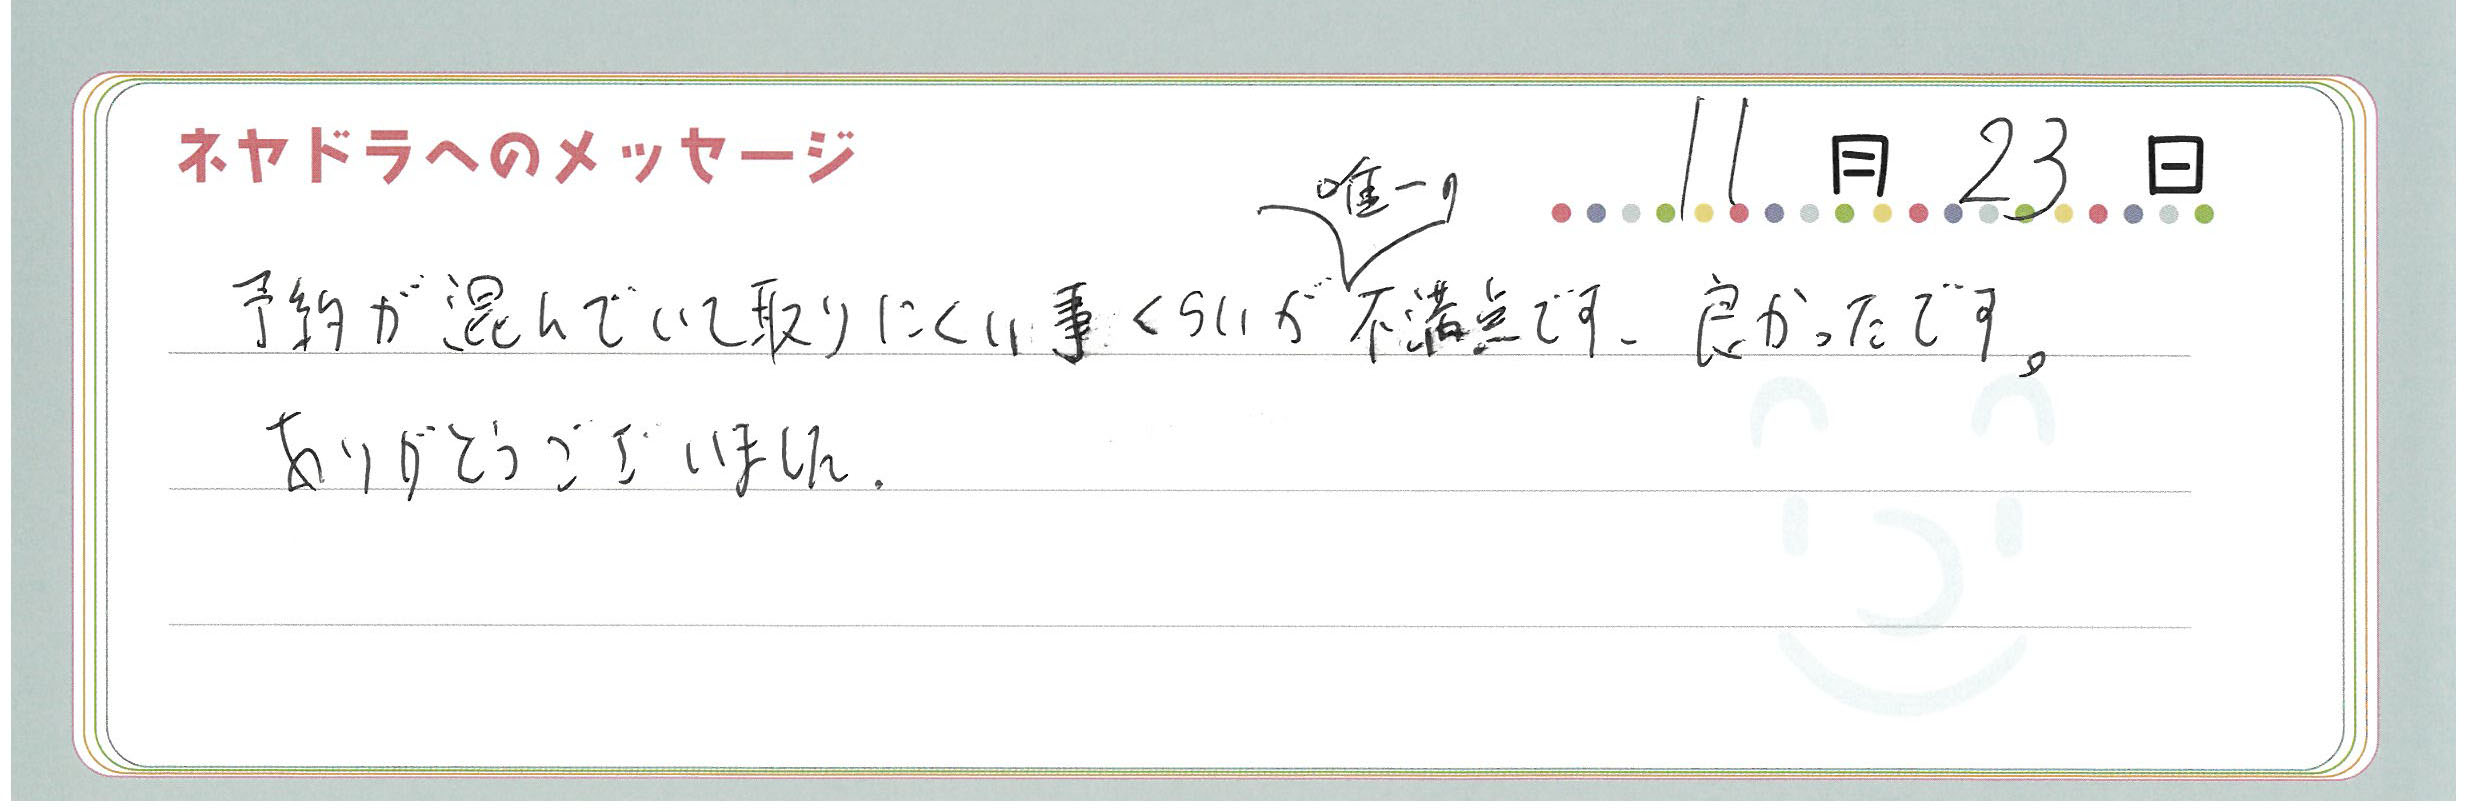 ネヤドラへのメッセージ
11月23日
唯一の
予約が混んでいて取りにくい事くらいが不満点です。良かったです。
ありがとうございました.